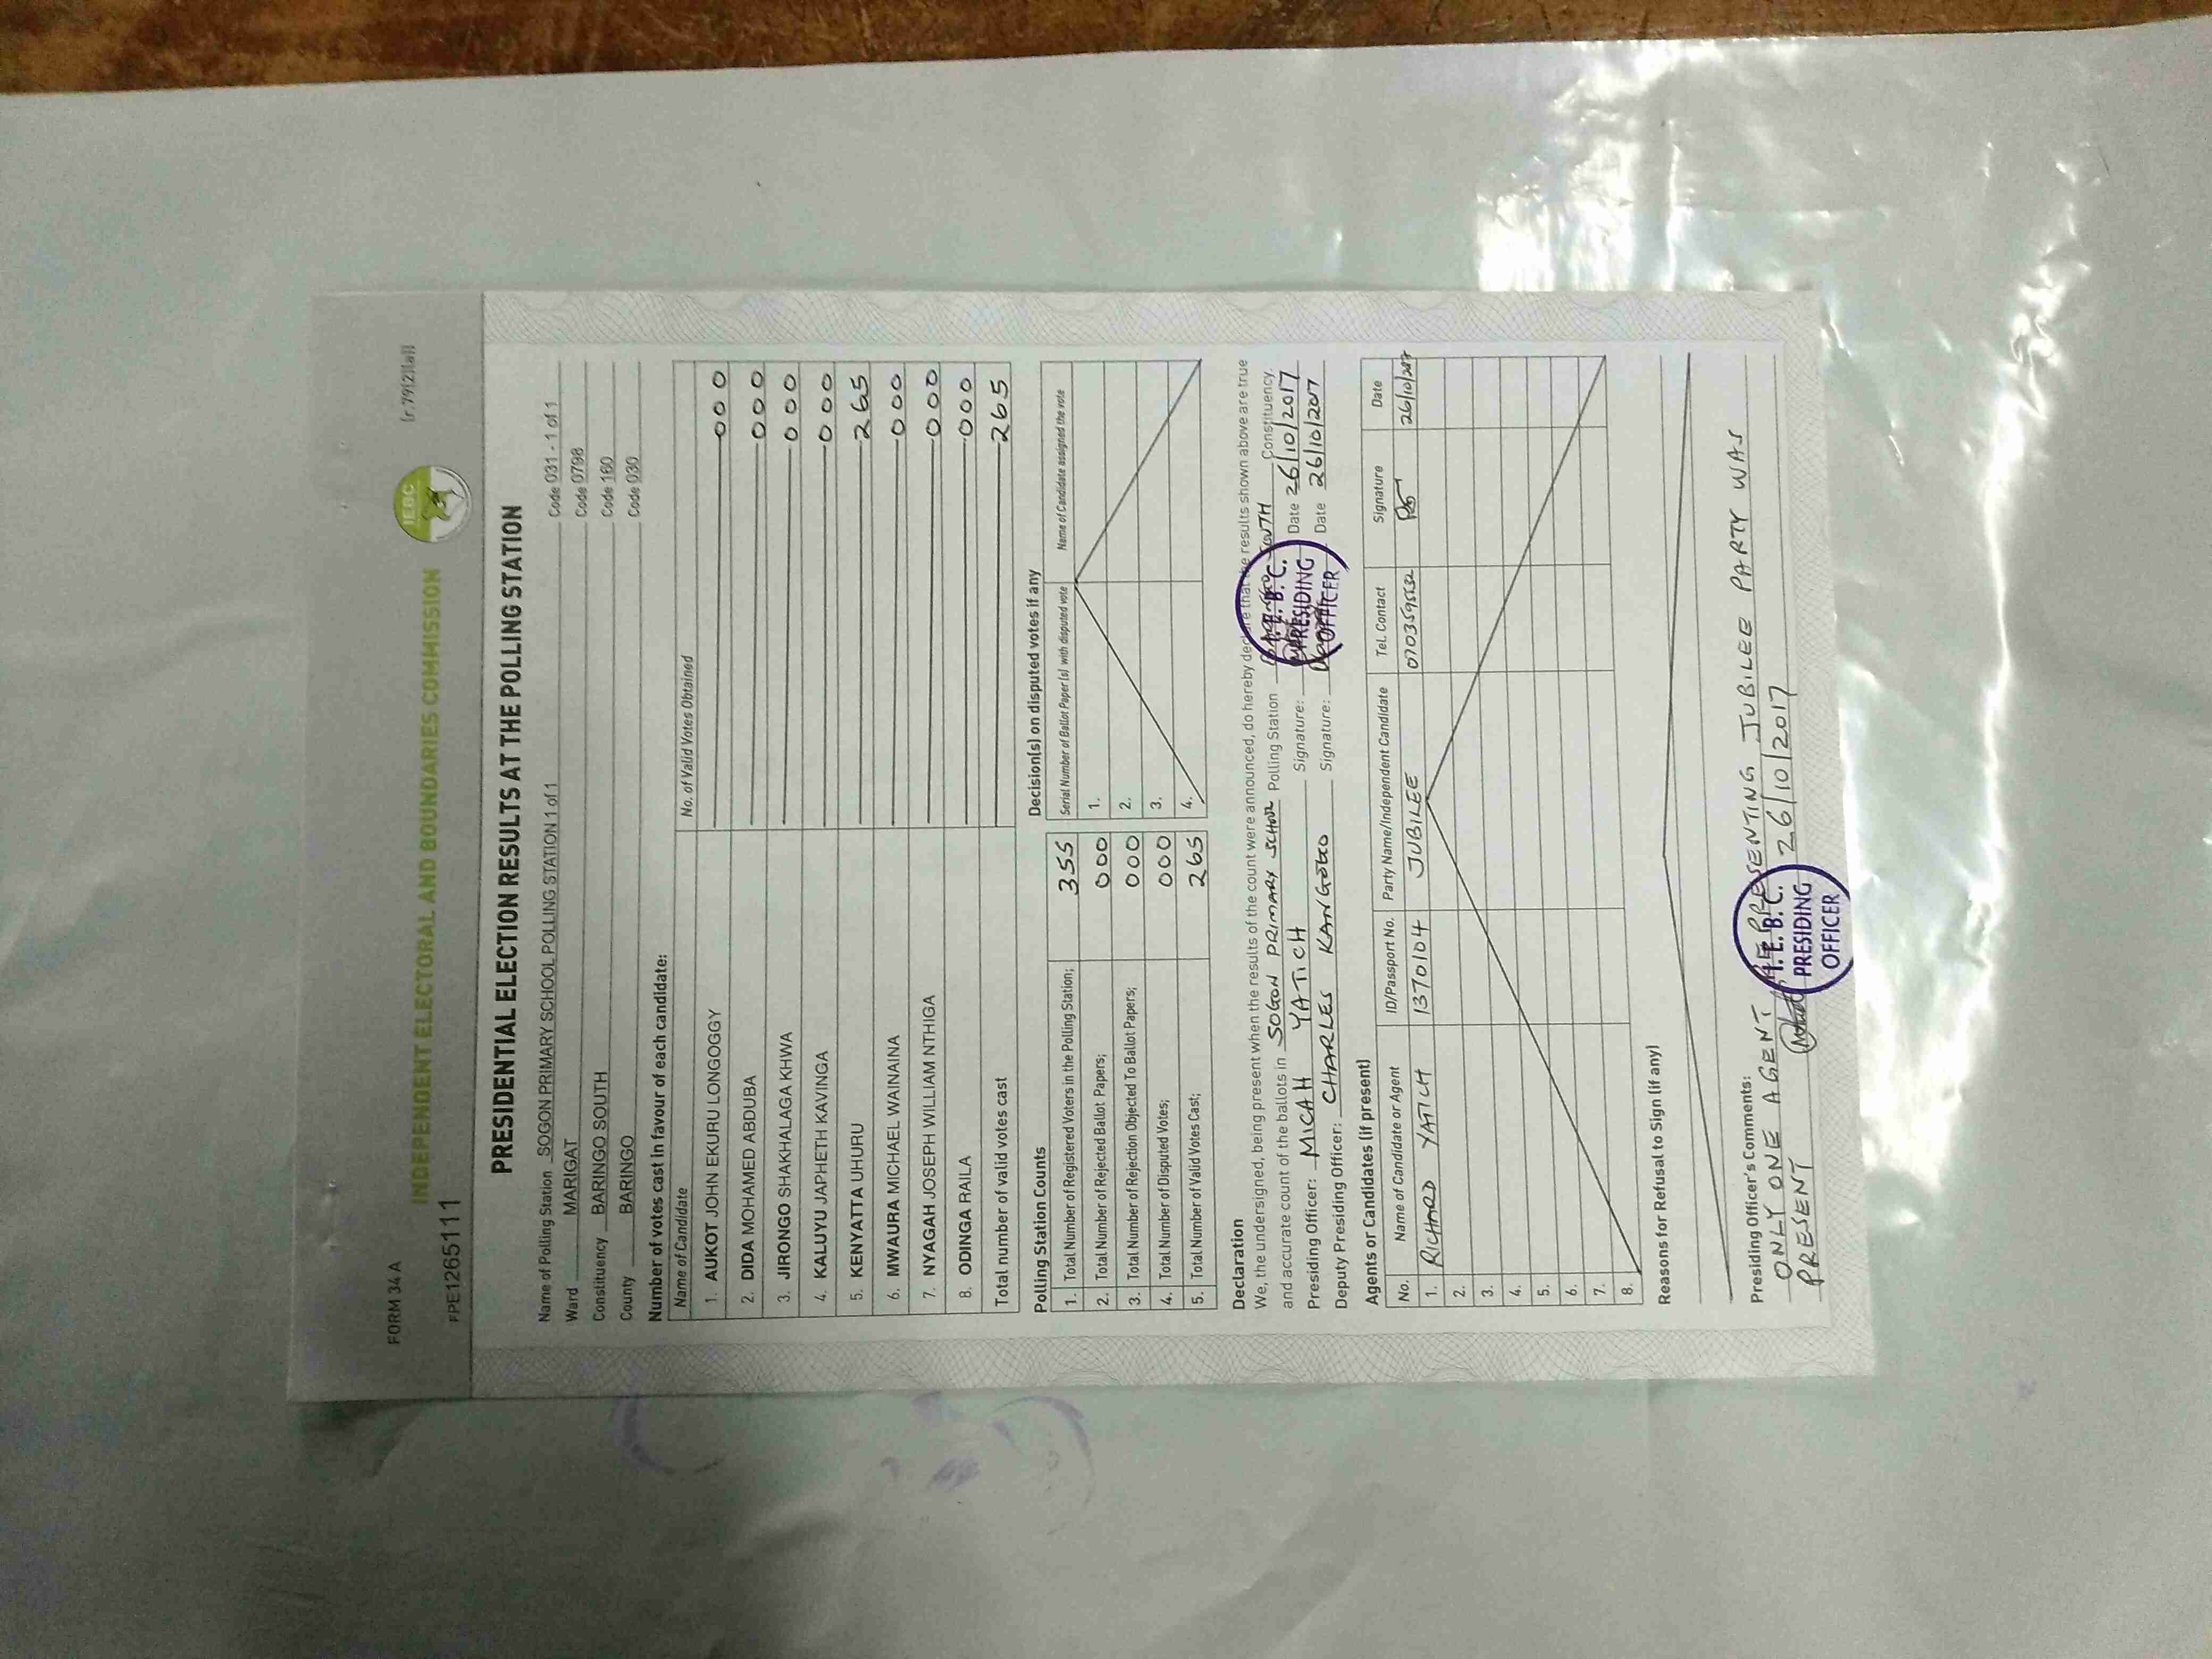 FORM 34 A
(r.79(2)(a))
INDEPENDENT ELECTORAL AND BOUNDARIES COMMISSION
IEBC
FPE1265111
PRESIDENTIAL ELECTION RESULTS AT THE POLLING STATION
Name of Polling Station SOGON PRIMARY SCHOOL POLLING STATION 1 of 1 Code 031 - 1 of 1
Ward MARIGAT Code 0798
Constituency BARINGO SOUTH Code 160
County BARINGO Code 030
Number of votes cast in favour of each candidate:
Name of Candidate No. of Valid Votes Obtained
1. AUKOT JOHN EKURU LONGOGGY 000
2. DIDA MOHAMED ABDUBA 000
3. JIRONGO SHAKHALAGA KHWA 000
4. KALUYU JAPHETH KAVINGA 000
5. KENYATTA UHURU 265
6. MWAURA MICHAEL WAINAINA 000
7. NYAGAH JOSEPH WILLIAM NTHIGA 000
8. ODINGA RAILA 000
Total number of valid votes cast 265
Polling Station Counts
1. Total Number of Registered Voters in the Polling Station; 355
2. Total Number of Rejected Ballot Papers; 000
3. Total Number of Rejection Objected To Ballot Papers; 000
4. Total Number of Disputed Votes; 000
5. Total Number of Valid Votes Cast; 265
Decision(s) on disputed votes if any
Serial Number of Ballot Paper(s) with disputed vote Name of Candidate assigned the vote
1.
2.
3.
4.
Declaration
We, the undersigned, being present when the results of the count were announced, do hereby declare that the results shown above are true
and accurate count of the ballots in SOGON PRIMARY SCHOOL Polling Station BARINGO SOUTH Constituency.
Presiding Officer: MICAH YATICH Signature: Date 26/10/2017
Deputy Presiding Officer: CHARLES KANGOGO Signature: Date 26/10/2017
I.E.B.C.
PRESIDING
OFFICER
Agents or Candidates (if present)
No. Name of Candidate or Agent ID/Passport No. Party Name/Independent Candidate Tel. Contact Signature Date
1. RICHARD YATICH 1370104 JUBILEE 0703595632 26/10/2017
2.
3.
4.
5.
6.
7.
8.
Reasons for Refusal to Sign (if any)
Presiding Officer's Comments:
ONLY ONE AGENT REPRESENTING JUBILEE PARTY WAS
PRESENT 26/10/2017
I.E.B.C.
PRESIDING
OFFICER